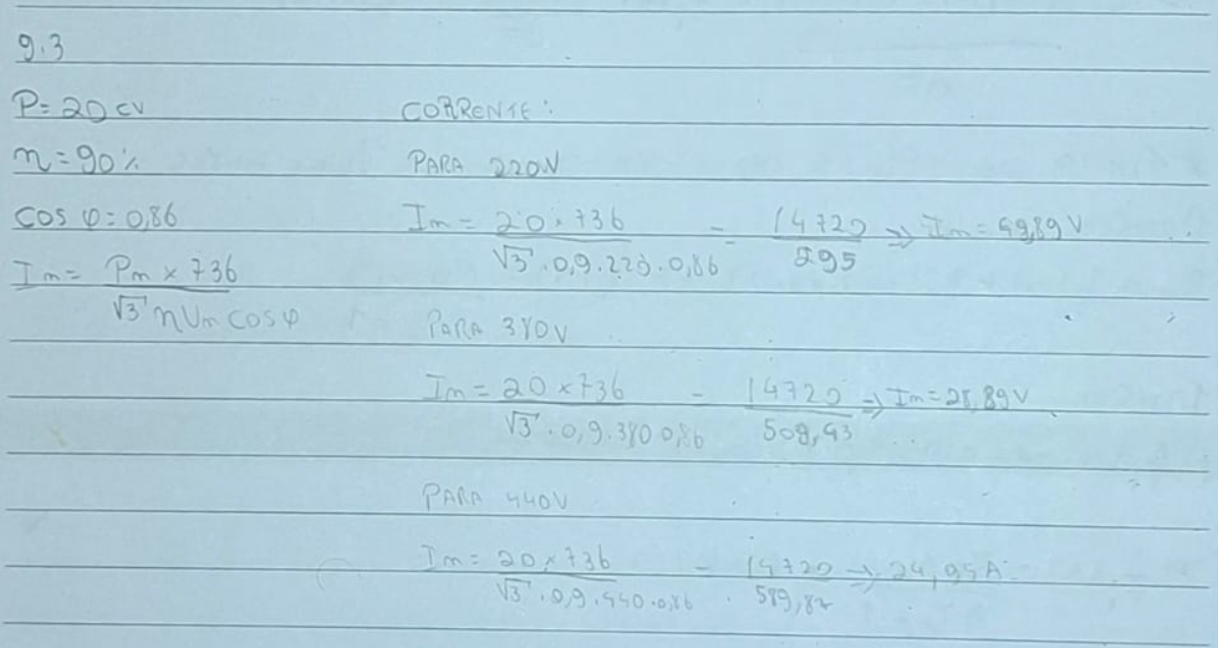 9.3
P= 20 cv
η = 90%
cos φ = 0,86
Im = Pm × 736 / √3 η Um cos φ
CORRENTE:
PARA 220V
Im = 20 . 736 / √3 . 0,9 . 220 . 0,86 = 14720 / 295 ⇒ Im = 49,89 V
PARA 380V
Im = 20 × 736 / √3 . 0,9 . 380 0,86 = 14720 / 509,43 ⇒ Im = 28,89 V
PARA 440V
Im = 20 × 736 / √3 . 0,9 . 440 . 0,86 = 14720 / 589,82 ⇒ 24,95 A